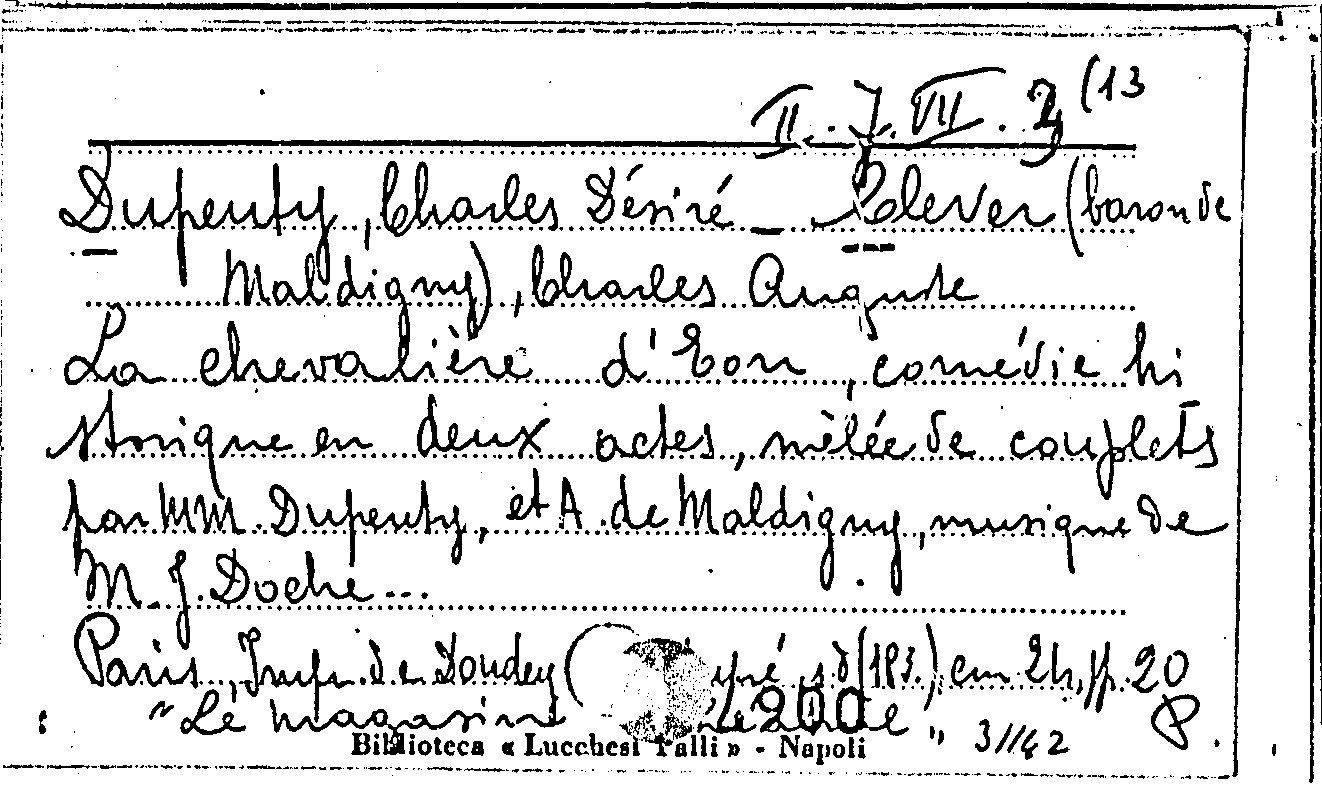 II. J. VII. 3 (13
Dupeuty, Charles Désiré - Clever (baron de
Maldigny), Charles Auguste
La chevalière d'Eon, comédie hi
storique en deux actes, mêlée de couplets
par MM. Dupeuty, et A. de Maldigny, musique de
M. J. Doche...
Paris, Imp. de Dondey ( s d (183.) cm 24, pp. 20
"Le magasin " 3//42 P.
200
Biblioteca « Lucchesi Palli » - Napoli